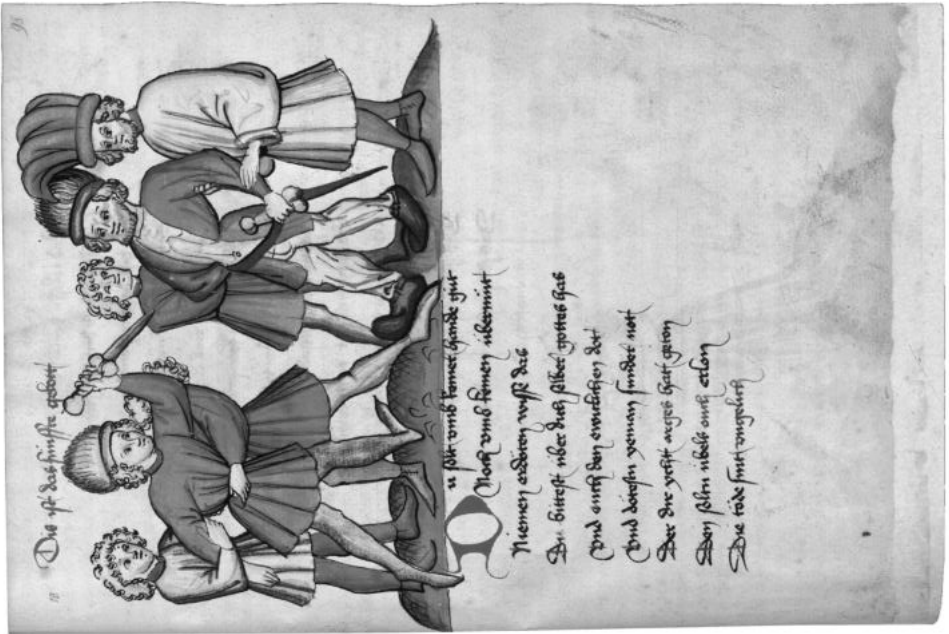 Dis yst das funffte gebott
Du solt vmb keiner hande gut
Noch vmb keinen übermütt
Niemen ertöten wysse das
Du über dich selber gottes has
Vnd auch den ewicklichen dot
Vnd dötestu yeman sunder nott
Der dir nyt arges hatt geton
Den soltu übels ouch erlon
Die tode sint vngelich